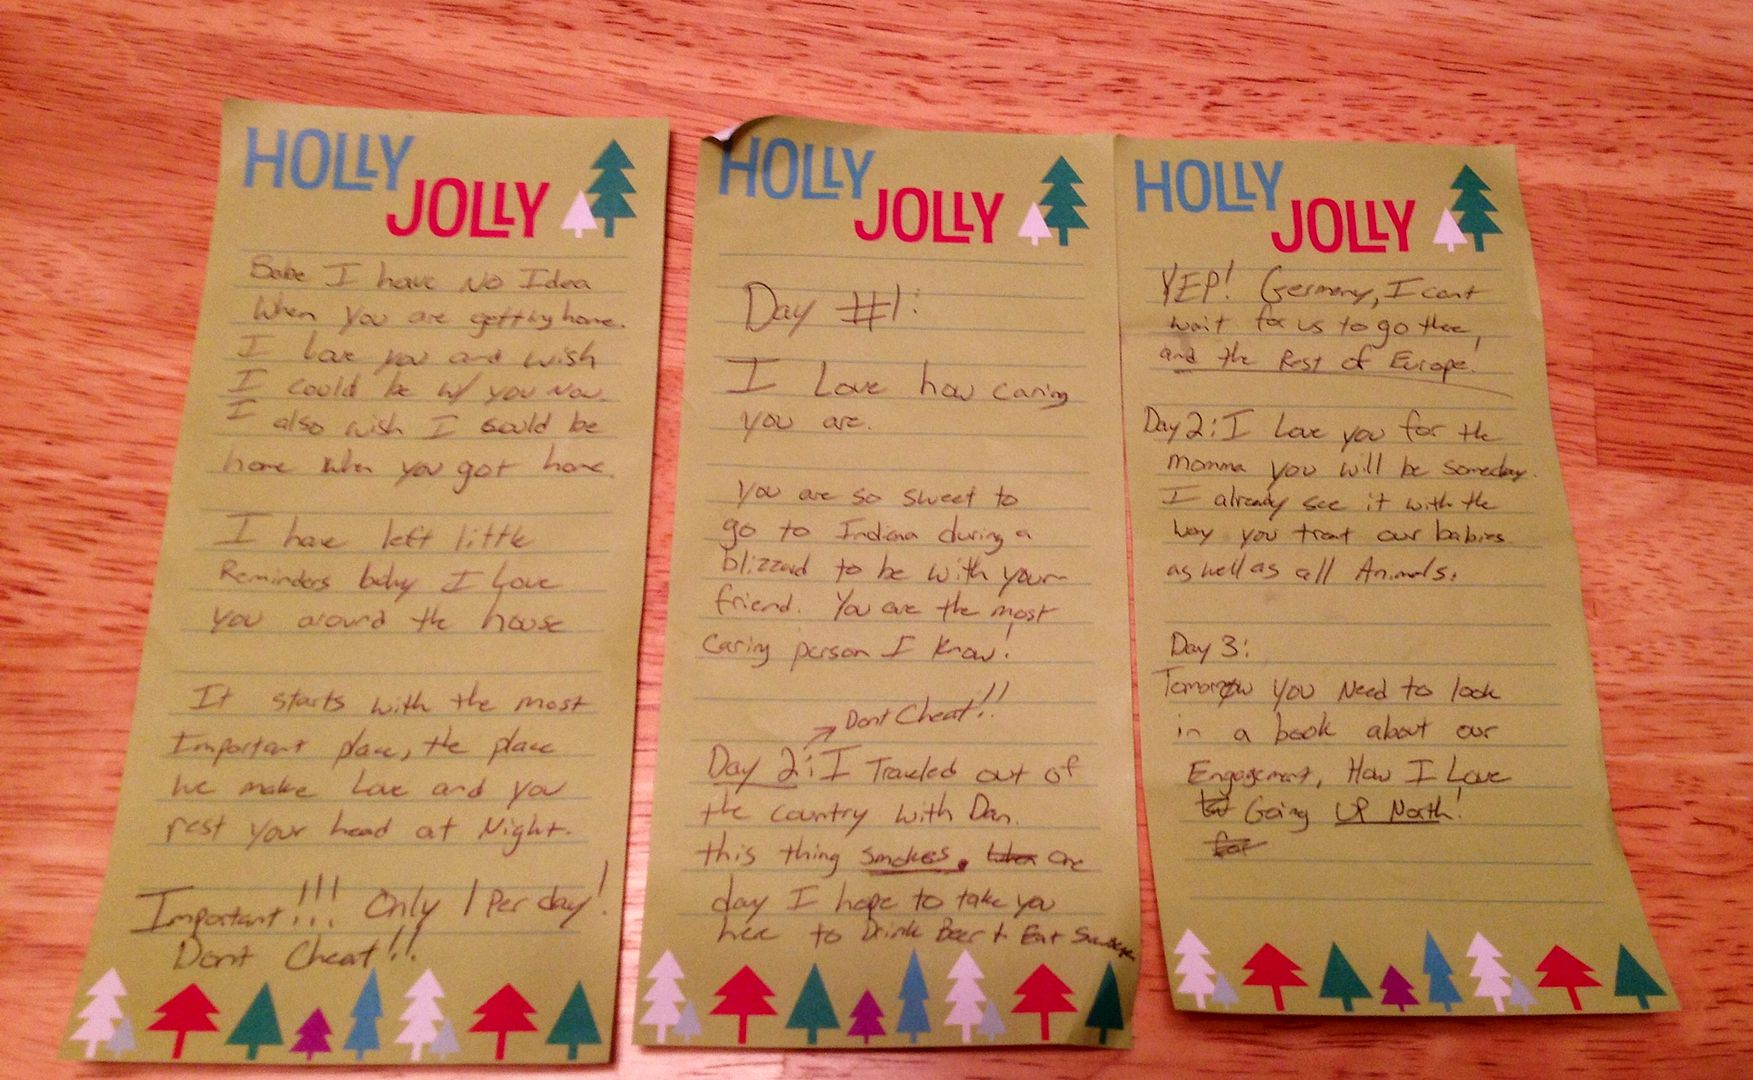 HOLLY
JOLLY
Babe I have No Idea
When you are getting home.
I love you and wish
I could be w/ you Now.
I also wish I could be
home when you got home.
I have left little
Reminders baby I Love
you around the house
It starts with the most
Important place, the place
we make Love and you
rest your head at Night.
Important!!! Only 1 Per day!
Dont Cheat!!
HOLLY
JOLLY
Day #1:
I Love how caring
you are.
You are so sweet to
go to Indiana during a
blizzard to be with your
friend. You are the most
caring person I know!
Dont Cheat!!
Day 2: I Traveled out of
the country with Dan.
this thing smokes. when one
day I hope to take you
here to Drink Beer + Eat
HOLLY
JOLLY
YEP! Germany, I cant
wait for us to go there,
and the Rest of Europe!
Day 2: I Love you for the
momma you will be someday.
I already see it with the
way you treat our babies
as well as all Animals.
Day 3:
Tomorrow you Need to look
in a book about our
Engagement, How I Love
Going UP North!
for